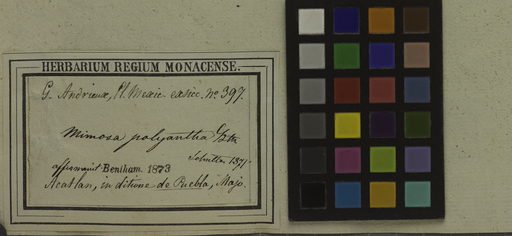 HERBARIUM REGIUM MONACENSE.
G. Andrieux, Pl. Mexic. exsicc. no 397.
Mimosa polyantha Bth
1871
affirmavit Bentham. 1873
Acatlan, in ditione de Puebla, Majo.